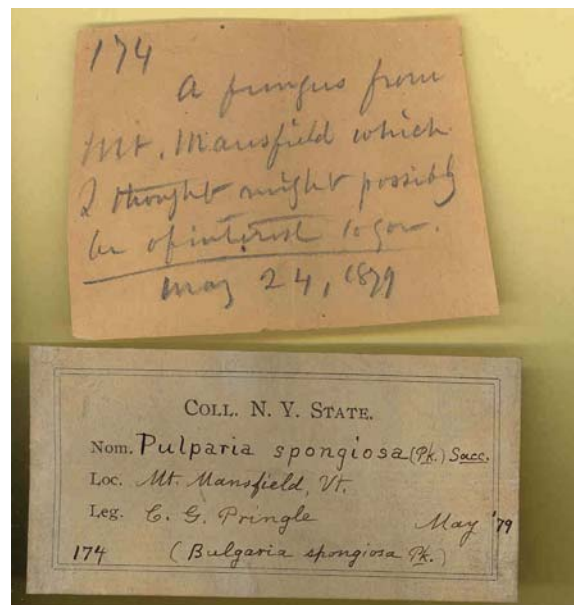 174
A fungus from
Mt. Mansfield which
I thought might possibly
be of interest to you.
May 24, 1879
COLL. N. Y. STATE.
Nom. Pulparia spongiosa (Pk.) Sacc.
Loc. Mt. Mansfield, Vt.
Leg. C. G. Pringle May '79
174 (Bulgaria spongiosa Pk.)